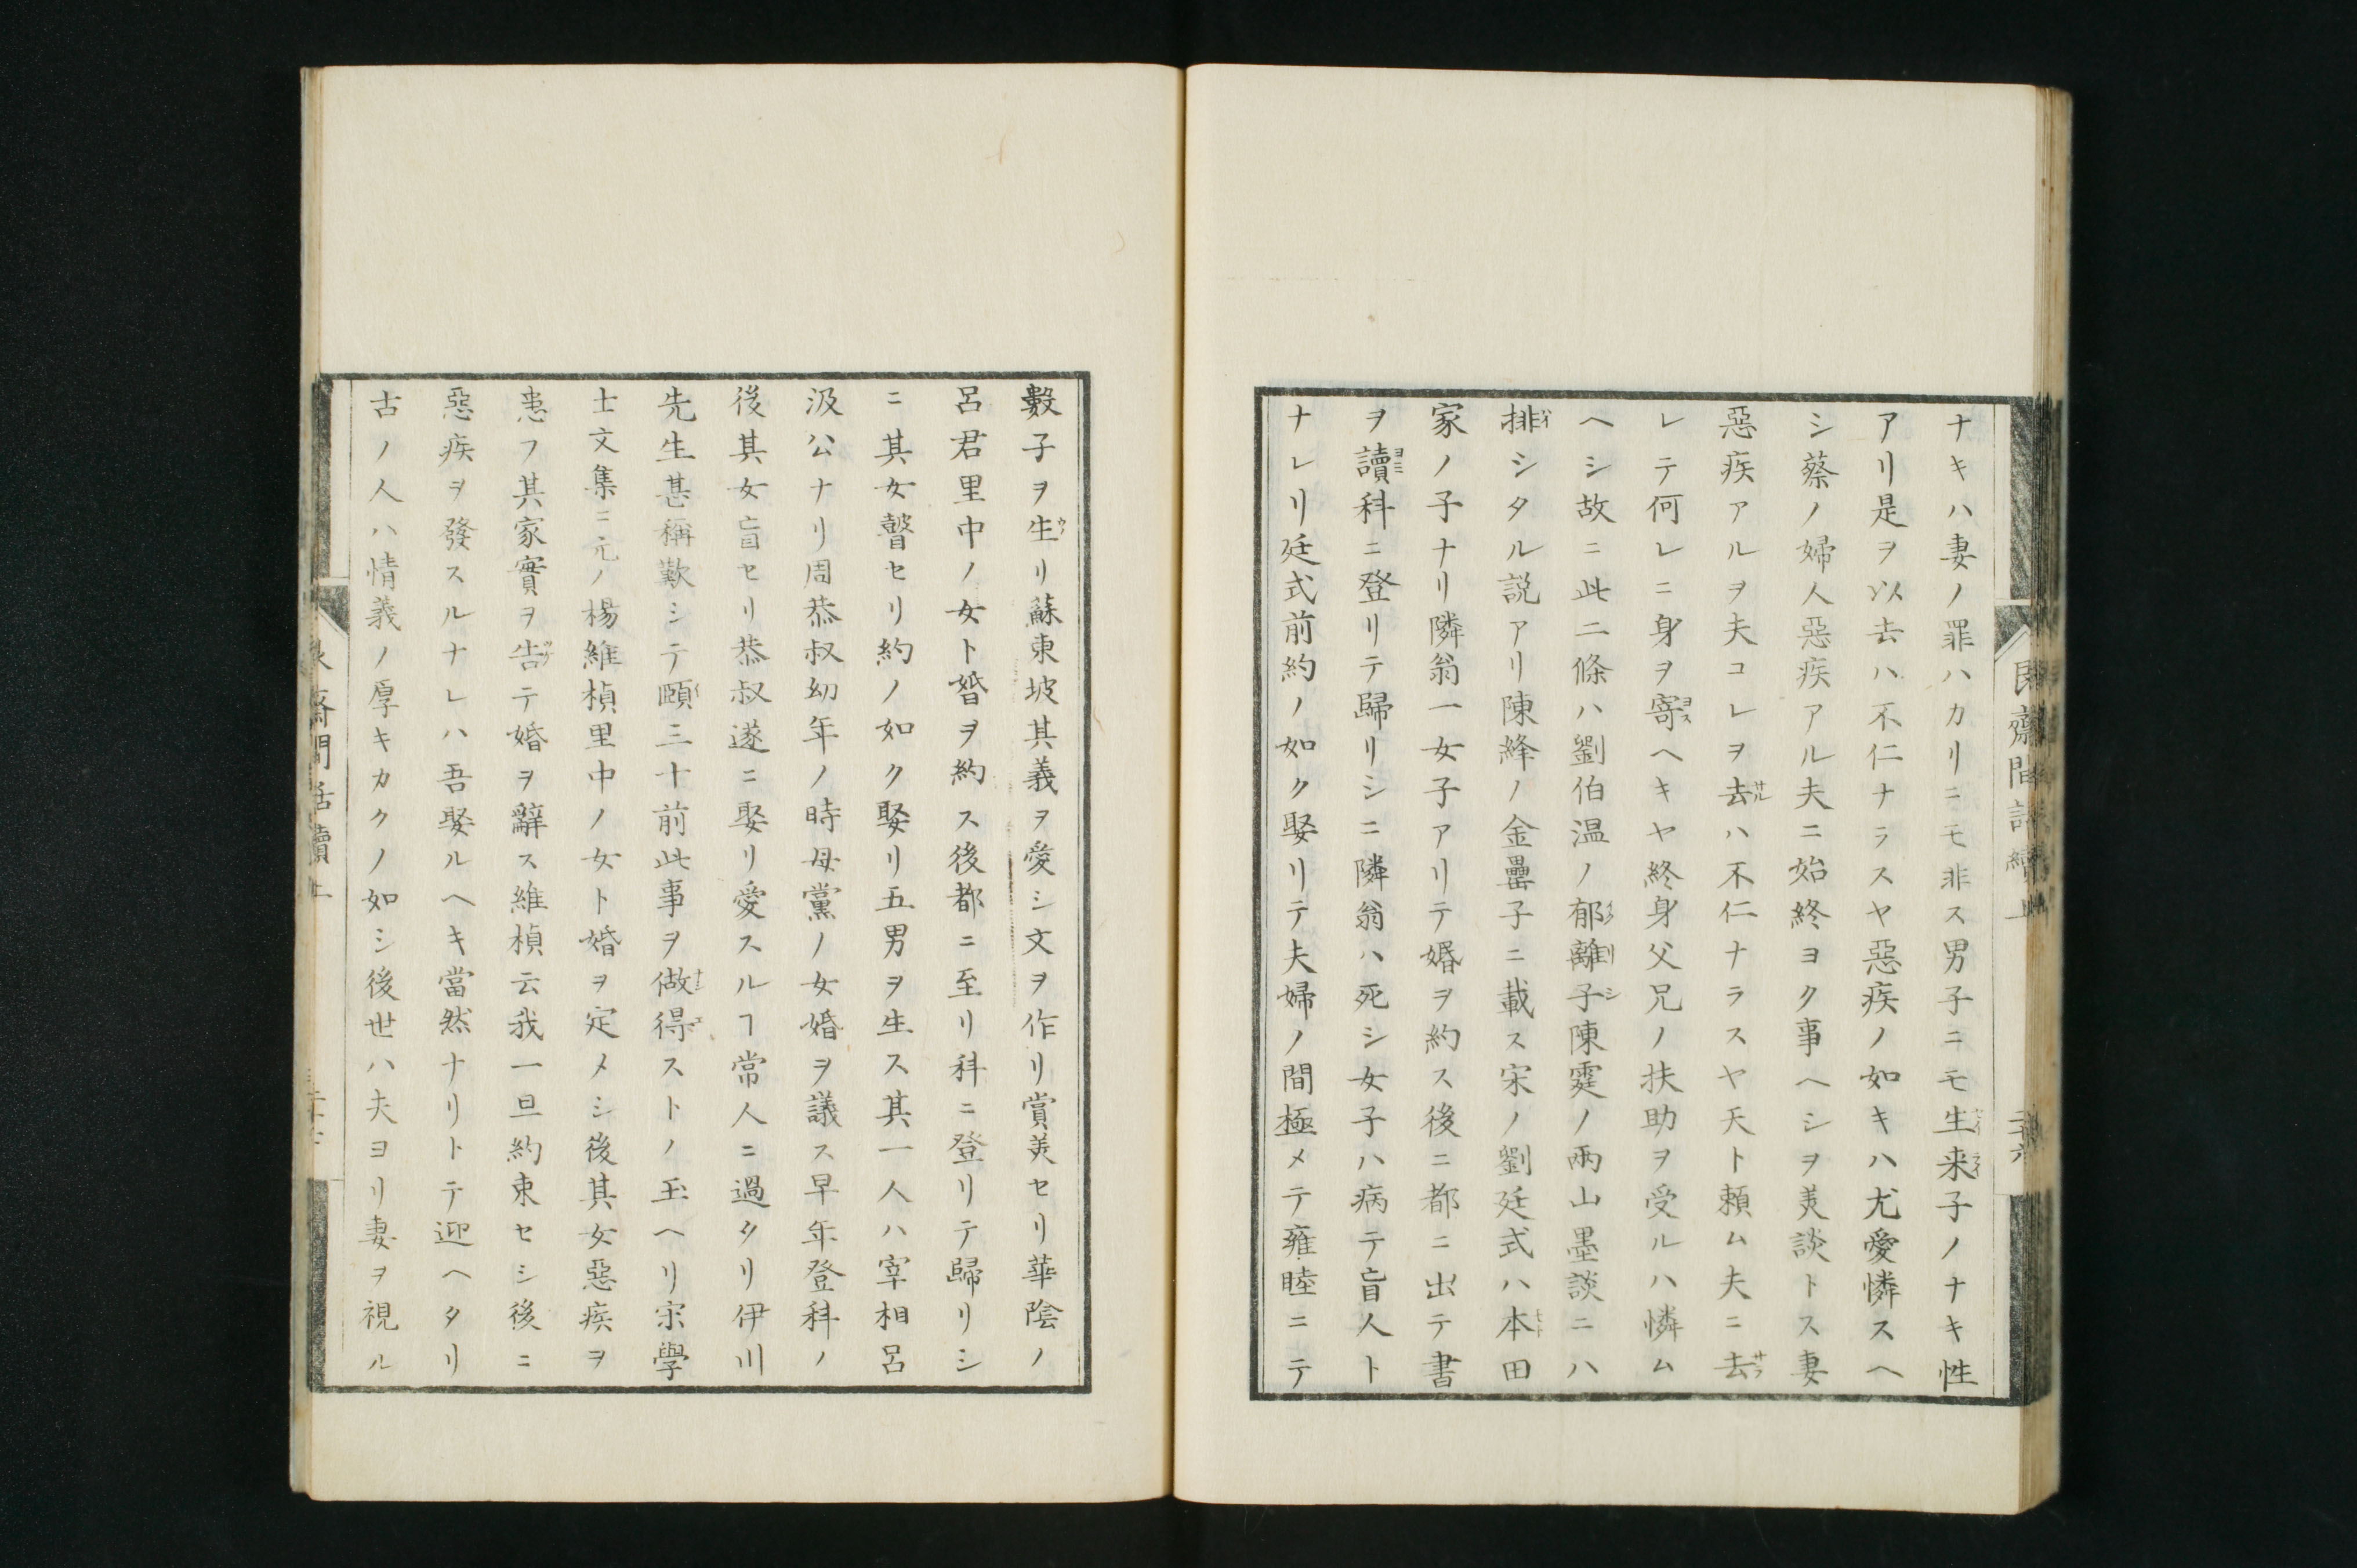 ナキハ妻ノ罪ハカリニモ非ス男子ニモ生来子ノナキ性
アリ是ヲ以去ハ不仁ナラスヤ惡疾ノ如キハ尤愛憐スヘ
シ蔡ノ婦人惡疾アル夫ニ始終ヨク事ヘシヲ美談トス妻
惡疾アルヲ夫コレヲ去ハ不仁ナラスヤ天ト頼ム夫ニ去
レテ何レニ身ヲ寄ヘキヤ終身父兄ノ扶助ヲ受ルハ憐ム
ヘシ故ニ此二條ハ劉伯温ノ郁離子陳霆ノ兩山墨談ニハ
排シタル説アリ陳絳ノ金罍子ニ載ス宋ノ劉廷式ハ本田
家ノ子ナリ隣翁一女子アリテ婚ヲ約ス後ニ都ニ出テ書
ヲ讀科ニ登リテ歸リシニ隣翁ハ死シ女子ハ病テ盲人ト
ナレリ廷式前約ノ如ク娶リテ夫婦ノ間極メテ雍睦ニテ
數子ヲ生リ蘇東坡其義ヲ愛シ文ヲ作リ賞美セリ華陰ノ
呂君里中ノ女ト婚ヲ約ス後都ニ至リ科ニ登リテ歸リシ
ニ其女瞽セリ約ノ如ク娶リ五男ヲ生ス其一人ハ宰相呂
汲公ナリ周恭叔幼年ノ時母黨ノ女婚ヲ議ス早年登科ノ
後其女盲セリ恭叔遂ニ娶リ愛スルヿ常人ニ過タリ伊川
先生甚稱歎シテ頤三十前此事ヲ做得ストノ玉ヘリ宋學
士文集ニ元ノ楊維楨里中ノ女ト婚ヲ定メシ後其女惡疾ヲ
患フ其家實ヲ告テ婚ヲ辭ス維楨云我一旦約束セシ後ニ
惡疾ヲ發スルナレハ吾娶ルヘキ當然ナリトテ迎ヘタリ
古ノ人ハ情義ノ厚キカクノ如シ後世ハ夫ヨリ妻ヲ視ル